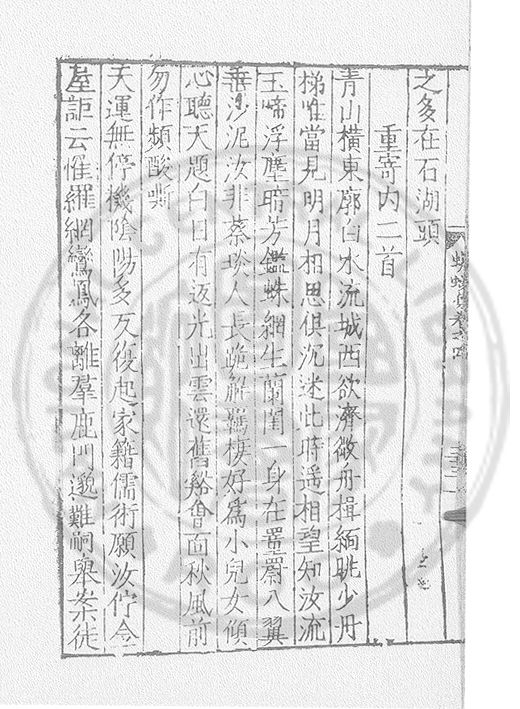 之多在石湖頭
重寄内二首
青山橫東廓白水流城西欲濟敞舟楫緬眺少丹
梯唯當見明月相思俱沉迷此時遥相望知汝流
玉啼浮塵暗芳鑑蛛網生蘭閨一身在罿罻八翼
垂沙泥汝非蔡琰人長跪解羈棲好為小兒女傾
心聽大題白日有返光出雲還舊谿會面秋風前
勿作頻酸嘶
天運無停機陰陽多反復起家籍儒術願汝佇今
詎云惟羅網鸞鳳各離羣鹿門邈難嗣舉案徒
蠛蠓集卷之四